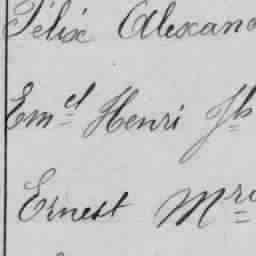 Félix Alexand
Em.el Henri Jh
Ernest Mre